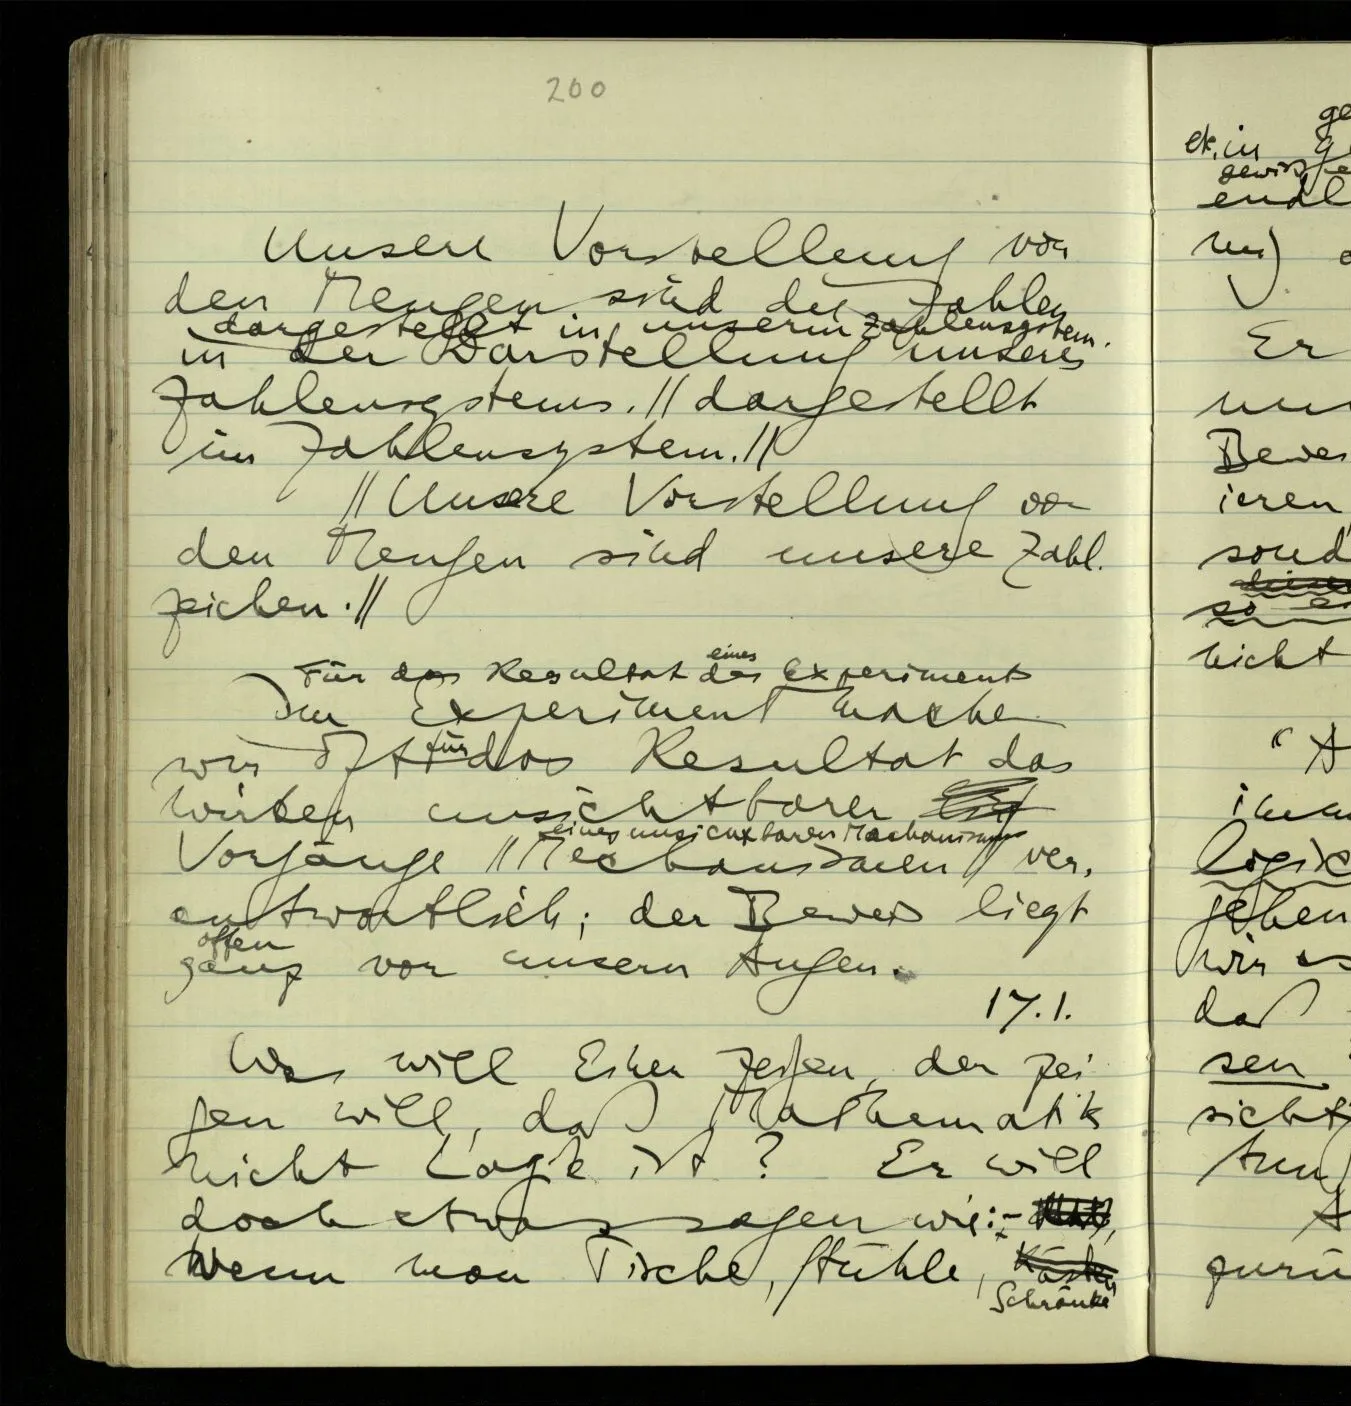 200
Unsere Vorstellung von
den Mengen sind die Zahlen
dargestellt in unserm Zahlensystem.
in der Darstellung unseres
Zahlensystems. // dargestellt
im Zahlensystem. //
// Unsere Vorstellung von
den Mengen sind unsere Zahl-
zeichen. //
Für das Resultat des Experiments
eines
Im Experiment machen
wir oft für das Resultat das
Wirken unsichtbarer
eines unsichtbaren Mechanismus
Vorgänge // Mechanismen // ver-
antwortlich; der Beweis liegt
offen
ganz vor unsern Augen.
17.1.
Was will Einer zeigen, der zei-
gen will, daß Mathematik
nicht Logik ist? Er will
doch etwas sagen wie: –
Wenn man Tische, Stühle, Kästen
Schränke
etc. in
gewiß
endl
Er
Bewei
ieren
sond
so
nicht
"A
logik
gehen
wir es
daß
sen
sicht
tung
A
zurü